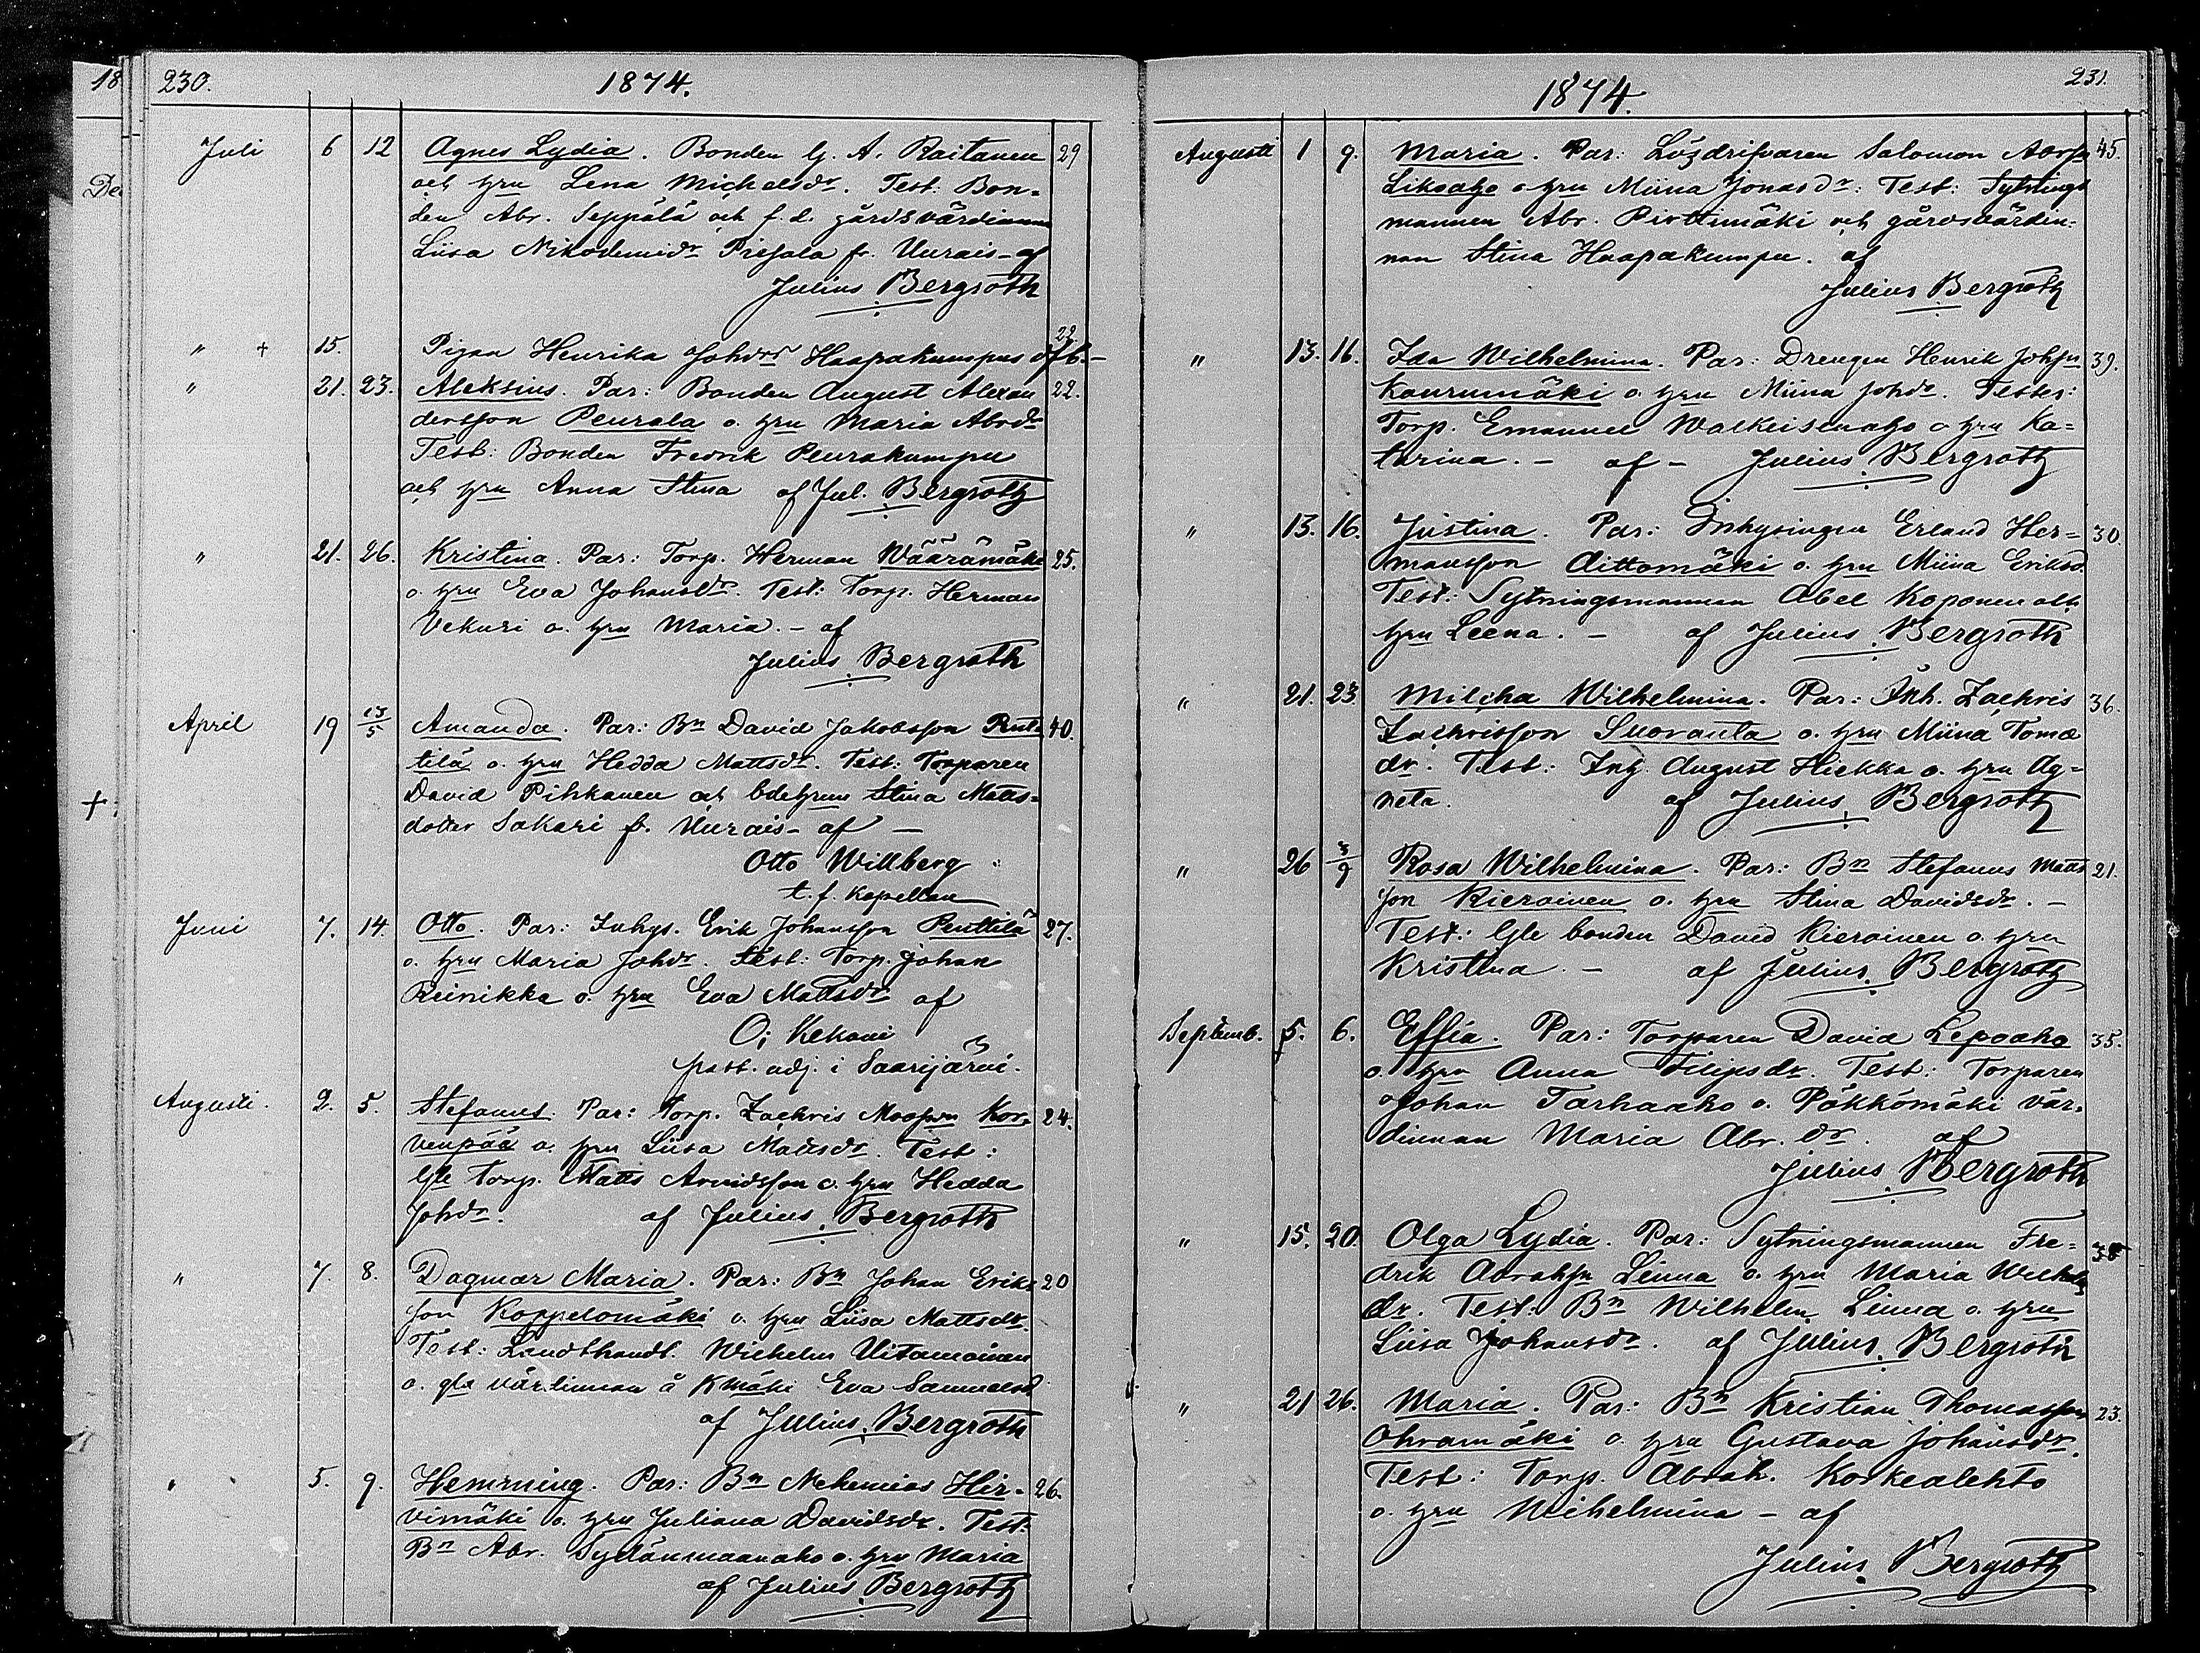 18
De
+
230.
1874.
Juli 6 12 Agnes Lydia. Bonden G. A. Raitanen 29
och hru Lena Michelsdr. Test: Bon-
den Abr. Seppälä och f. d. gårdsvärdinnan
Liisa Nikodemidr Piesala fr. Uurais - af
Julius Bergroth
" + 15. Pigan Henrika Johdrs Haapakumpus 22
" 21. 23. Aleksius. Par: Bonden August Alexan 22.
dersson Peurala o. hru Maria Abrdr
Test: Bonden Fredrik Peurakumpu
och hru Anna Stina af Jul. Bergroth
" 21. 26. Kristina. Par: Torp. Herman Wäärämäki 25.
o. hru Eva Johansdr. Test: Torp. Herman
Vekuri o. hru Maria. - af
Julius Bergroth
April 19 13/5 Amanda. Par: Bn David Jakobsson Pent- 40.
tilä o. hru Hedda Mattsdr. Test: Torparen
David Pihkanen och bdehrun Stina Matts-
dotter Sakari fr. Uurais - af -
Otto Willberg
t. f. kapellan
Juni 7. 14. Otto. Par: Inhys. Erik Johansson Penttilä 27.
o. hru Maria Johdr. Test: Torp. Johan
Reinikka o. hru Eva Mattsdr af
O; Kekoni
past. adj. i Saarijärvi.
Augusti. 2. 5. Stefanus. Par: Torp. Zachris Kor- 24.
venpää o. hru Liisa Mattsdr. Test:
Gle Torp. Matts Arvidsson o. hru Hedda
Johdr. af Julius Bergroth
" 7. 8. Dagmar Maria. Par: Bn Johan Eriks- 20
son Koppelomäki o. hru Liisa Mattsdr.
Test: Landthandl. Wilhelm Uitamoinen
o. gla värdinnan å Kmäki Eva Samuelsd
af Julius Bergroth
" 5. 9. Hemming. Par: Bn Nehemias Hir- 26.
vimäki o. hru Juliana Davidsdr. Test:
Bn Abr. Sydänmaanaho o. hru Maria
af Julius Bergroth
1874.
231.
Augusti 1 9. Maria. Par: Lösdrifvaren Salomon 45.
Likoaho o hru Miina Jonasdr: Test: Sytnings
mannen Abr. Pirttimäki och gårdsvärdin-
nan Stina Haapakumpu. af
Julius Bergroth
" 13. 16. Ida Wilhelmina. Par: Drengen Henrik Johsn 39.
Kaurumäki o. hru Miina Johdr. Testes:
Torp. Emanuel Walkeisenaho o hru Ka-
tarina. - af - Julius Bergroth
" 13. 16. Justina. Par: Inhysingen Erland Her- 30.
mansson Aittomäki o. hru Miina Eriksd
Test: Sytningsmannen Abel Koponen och
hru Leena. - af Julius Bergroth
" 21. 23 Milcha Wilhelmina. Par: Inh. Zachris 36.
Zachrisson Suoranta o. hru Miina Toma
dr. Test: Inh. August Hiekka o. hru Ag-
neta. af Julius Bergroth
" 26 3/9 Rosa Wilhelmina. Par: Bn Stefanus Matts 21.
son Kieroinen o. hru Stina Davidsdr. -
Test: Gle bonden David Kieroinen o. hru
Kristina. - af Julius Bergroth
Septemb. 5. 6. Effia. Par: Torparen David Lepoaho 35.
o. hru Anna Filipsdr. Test: Torparen
Johan Tarhaaho o. Pökkömäki vär-
dinnan Maria Abr. dr. af
Julius Bergroth
" 15. 20. Olga Lydia. Par: Sytningsmannen Fre- 38
drik Abrahsn Linna o. hru Maria Wilh
dr. Test: Bn Wilhelm Linna o. hru
Liisa Johansdr. af Julius Bergroth
" 21 26. Maria. Par: Bn Kristian Thomasson 23.
Ohramäki o. hru Gustava Johansdr.
Test: Torp. Abrah. Korkealehto
o. hru Wilhelmina - af
Julius Bergroth